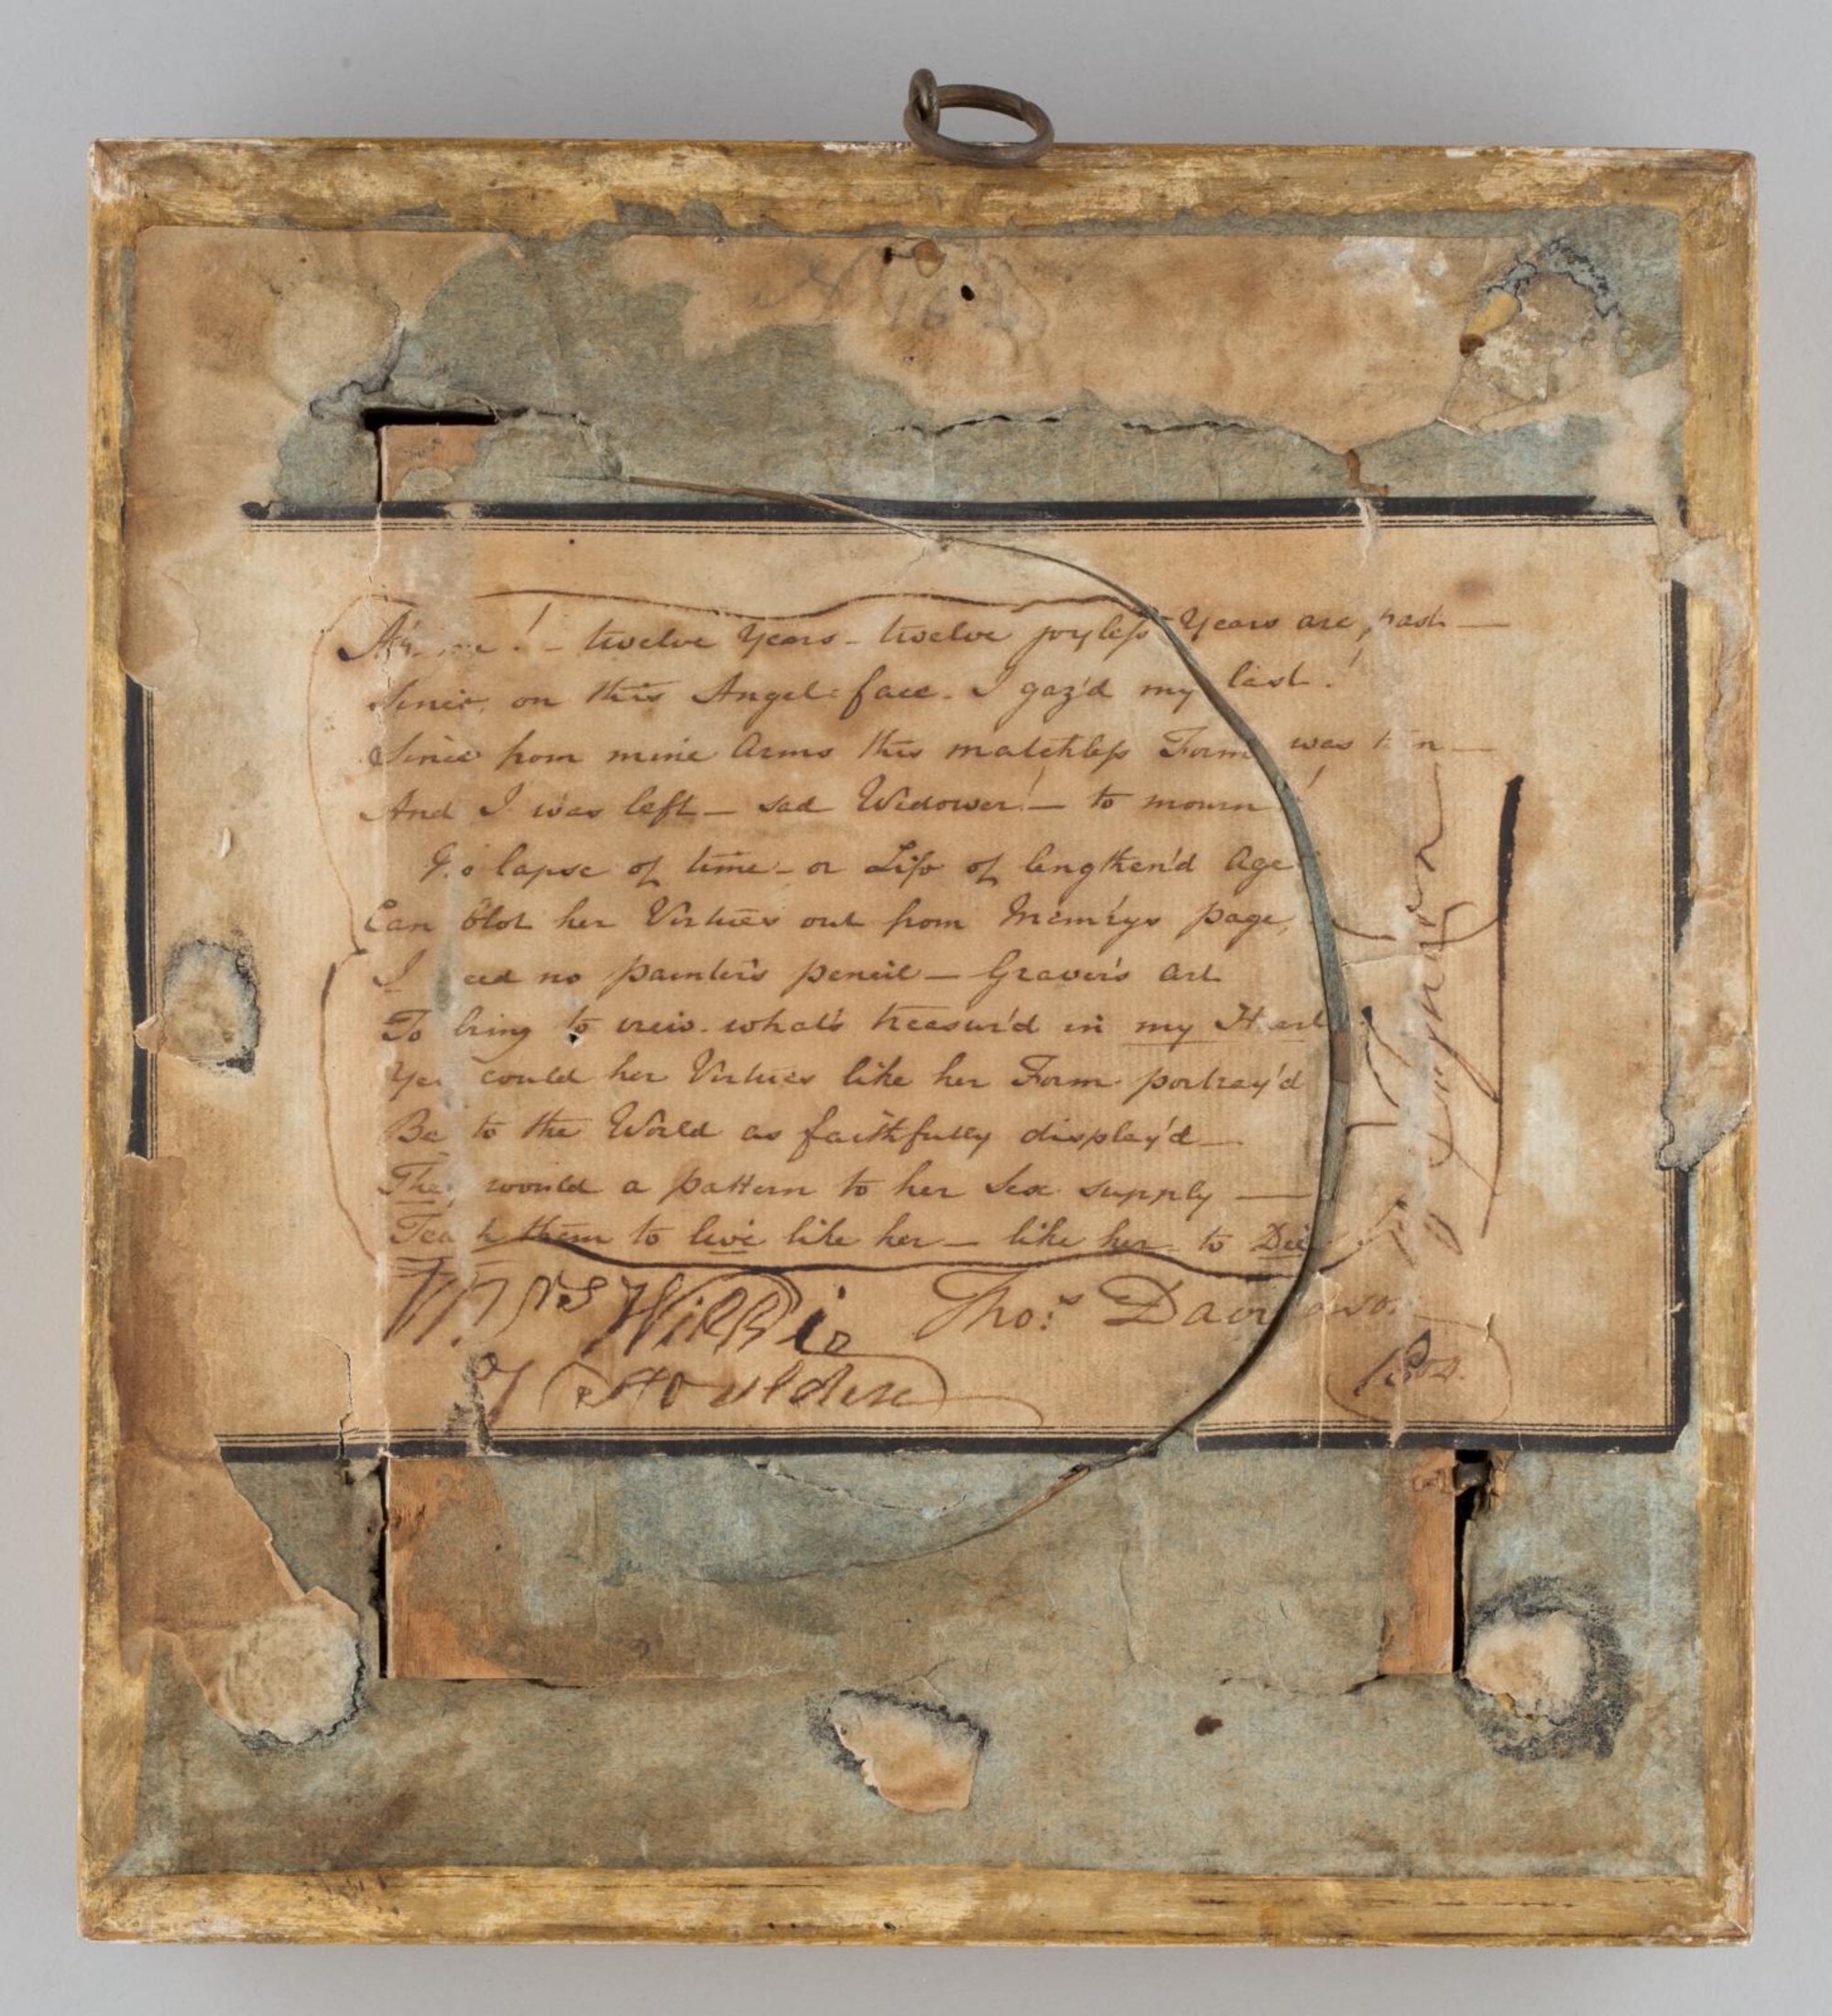 twelve Years - twelve joyless Years are past —
Since on this Angel face - I gaz'd my last!
Since from mine Arms this matchless Form was t n —
And I was left — sad Widower! — to mourn!
lapse of time - or Life of lengthen'd Age
Can blot her Virtues out from Mem'rys page,
I eed no painter's pencil — Graver's Art
To bring to view what's treasur'd in my H art
Ye could her Virtues like her Form portray'd
Be to the World as faithfully display'd —
The would a pattern to her Sex supply —
Tea h them to live like her — like her to Die
Mrs
Thos Dav
1804.